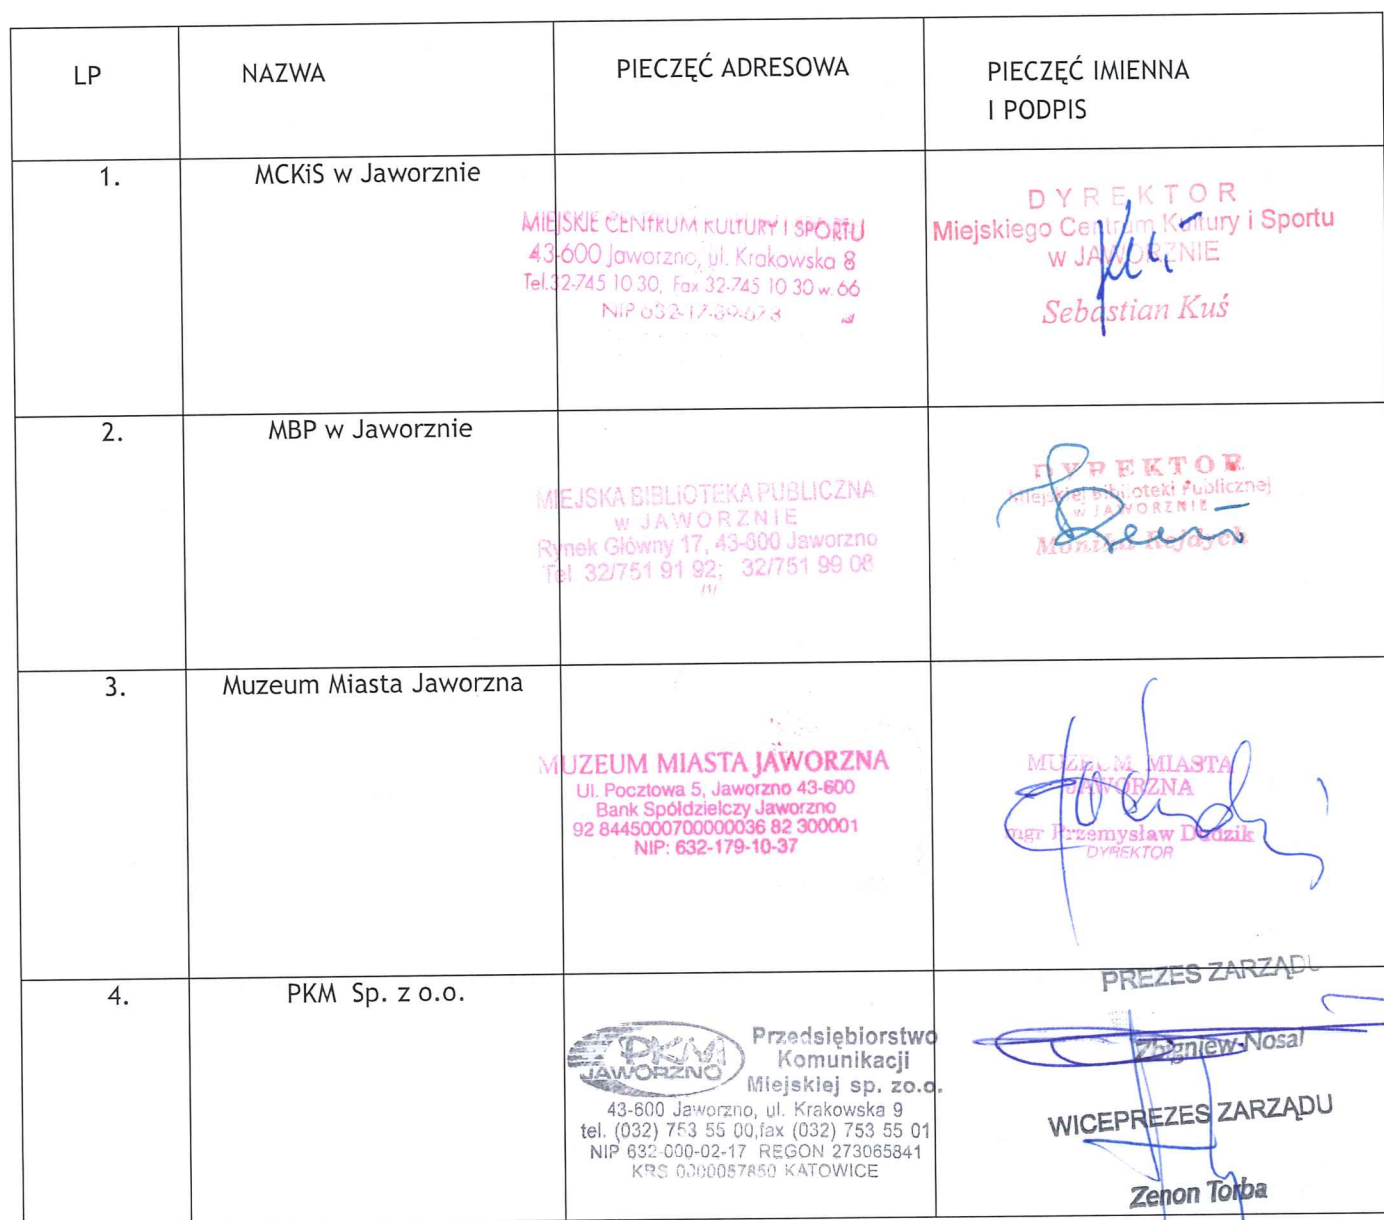 LP
NAZWA
PIECZĘĆ ADRESOWA
PIECZĘĆ IMIENNA
I PODPIS
1.
MCKiS w Jaworznie
MIEJSKIE CENTRUM KULTURY I SPORTU
43-600 Jaworzno, ul. Krakowska 8
Tel.32-745 10 30, Fax 32-745 10 30 w. 66
NIP
DYREKTOR
Miejskiego Centrum Kultury i Sportu
w JAWORZNIE
Sebastian Kuś
2.
MBP w Jaworznie
MIEJSKA BIBLIOTEKA PUBLICZNA
w JAWORZNIE
Rynek Główny 17, 43-600 Jaworzno
Tel. 32/751 91 92; 32/751 99 06
/1/
DYREKTOR
Miejskiej Biblioteki Publicznej
w JAWORZNIE
Monika Rejdych
3.
Muzeum Miasta Jaworzna
MUZEUM MIASTA JAWORZNA
Ul. Pocztowa 5, Jaworzno 43-600
Bank Spółdzielczy Jaworzno
92 8445000700000036 82 300001
NIP: 632-179-10-37
MUZEUM MIASTA
JAWORZNA
mgr Przemysław Dudzik
DYREKTOR
4.
PKM Sp. z o.o.
PKM
JAWORZNO
Przedsiębiorstwo
Komunikacji
Miejskiej sp. zo.o.
43-600 Jaworzno, ul. Krakowska 9
tel. (032) 753 55 00,fax (032) 753 55 01
NIP 632-000-02-17 REGON 273065841
KRS 0000057850 KATOWICE
PREZES ZARZĄDU
Zbigniew Nosal
WICEPREZES ZARZĄDU
Zenon Torba